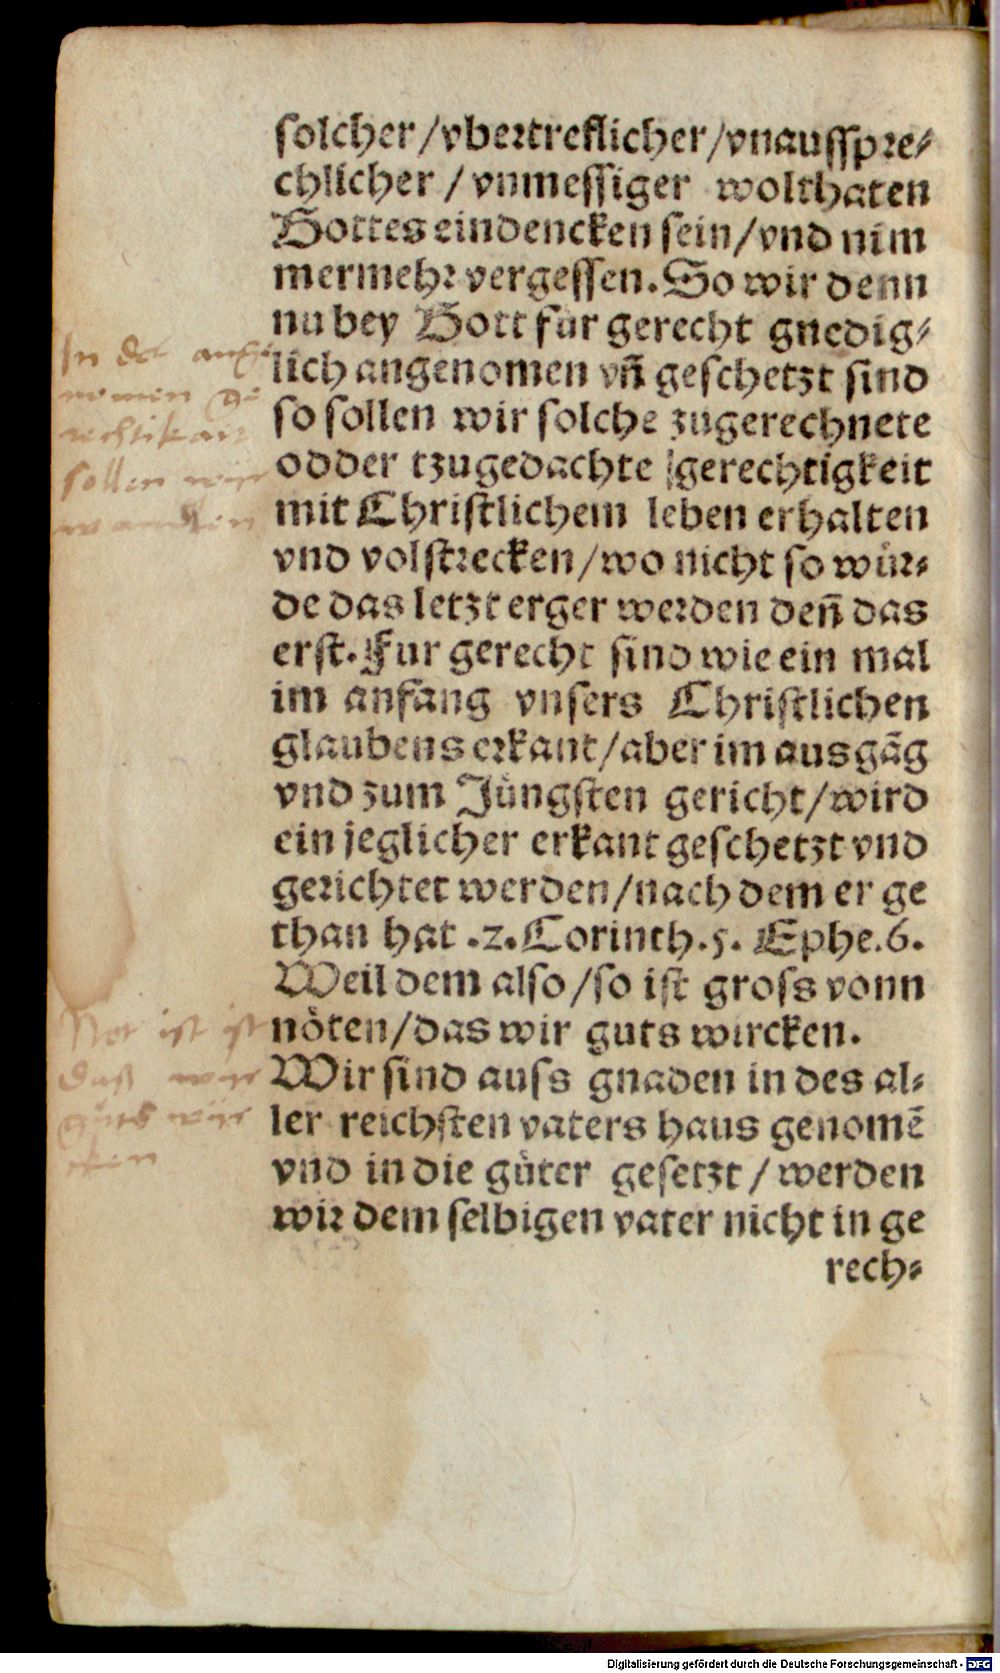 solcher/vbertreflicher/vnausspre-
chlicher / vnmessiger wolthaten
Gottes eindencken sein/vnd nim
mermehr vergessen. So wir denn
nu bey Gott fur gerecht gnedig-
lich angenomen vñ geschetzt sind
so sollen wir solche zugerechnete
odder tzugedachte gerechtigkeit
mit Christlichem leben erhalten
vnd volstrecken/wo nicht so wür-
de das letzt erger werden deñ das
erst. Fur gerecht sind wie ein mal
im anfang vnsers Christlichen
glaubens erkant/aber im ausgãg
vnd zum Jüngsten gericht/wird
ein jeglicher erkant geschetzt vnd
gerichtet werden/nach dem er ge
than hat .2. Corinth.5. Ephe.6.
Weil dem also/so ist gross vonn
nöten/das wir guts wircken.
Wir sind auss gnaden in des al-
ler reichsten vaters haus genomẽ
vnd in die güter gesetzt / werden
wir dem selbigen vater nicht in ge
rech-
In der
nomen
rechtikait
sollen wyr
wandlen
Not ist ist
daß wyr
guts wyr
cken
Digitalisierung gefördert durch die Deutsche Forschungsgemeinschaft - DFG